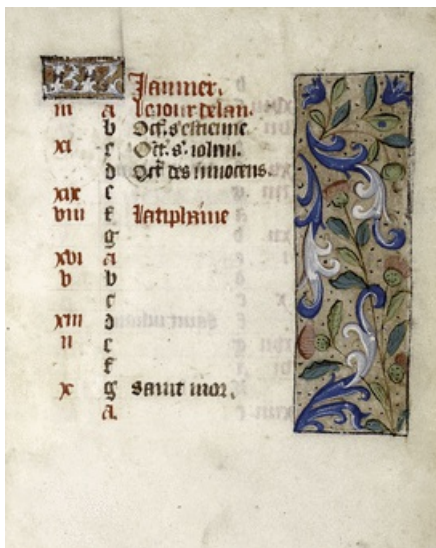 KL Januier.
iii a Le iour de lan.
b Oct. s' estienne
xi c Oct. s' iohan.
d Oct des innocens.
xix e
viii f La tiphaine
g
xvi a
v b
c
xiii d
ii e
f
x g saint mor.
a